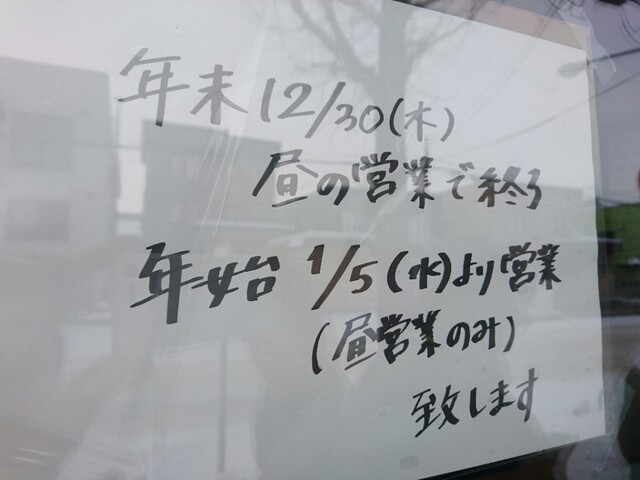 年末12/30(木)
昼の営業で終了
年始1/5(水)より営業
(昼営業のみ)
致します